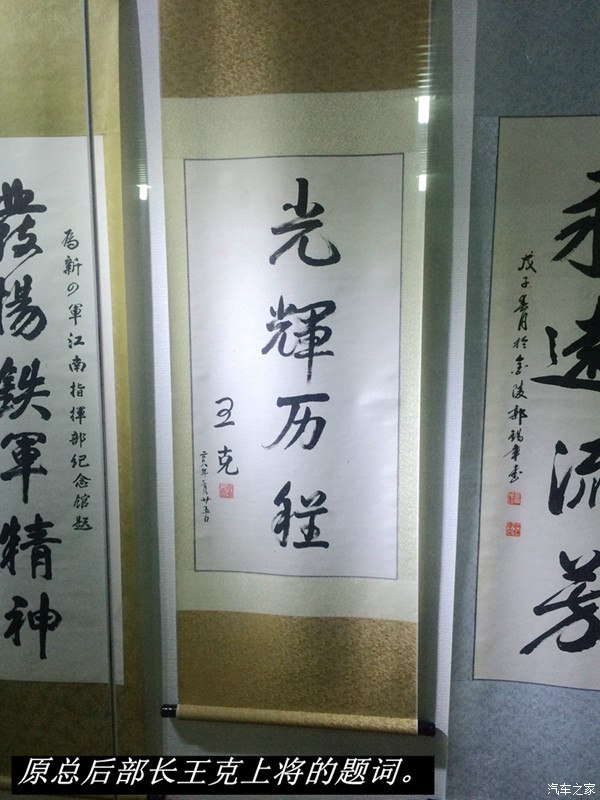 為新四軍江南指揮部纪念馆题
發揚鉄軍精神
光輝历程
王克
永遠流芳
戊子春月於金陵郭锡章書
原总后部长王克上将的题词。
汽车之家